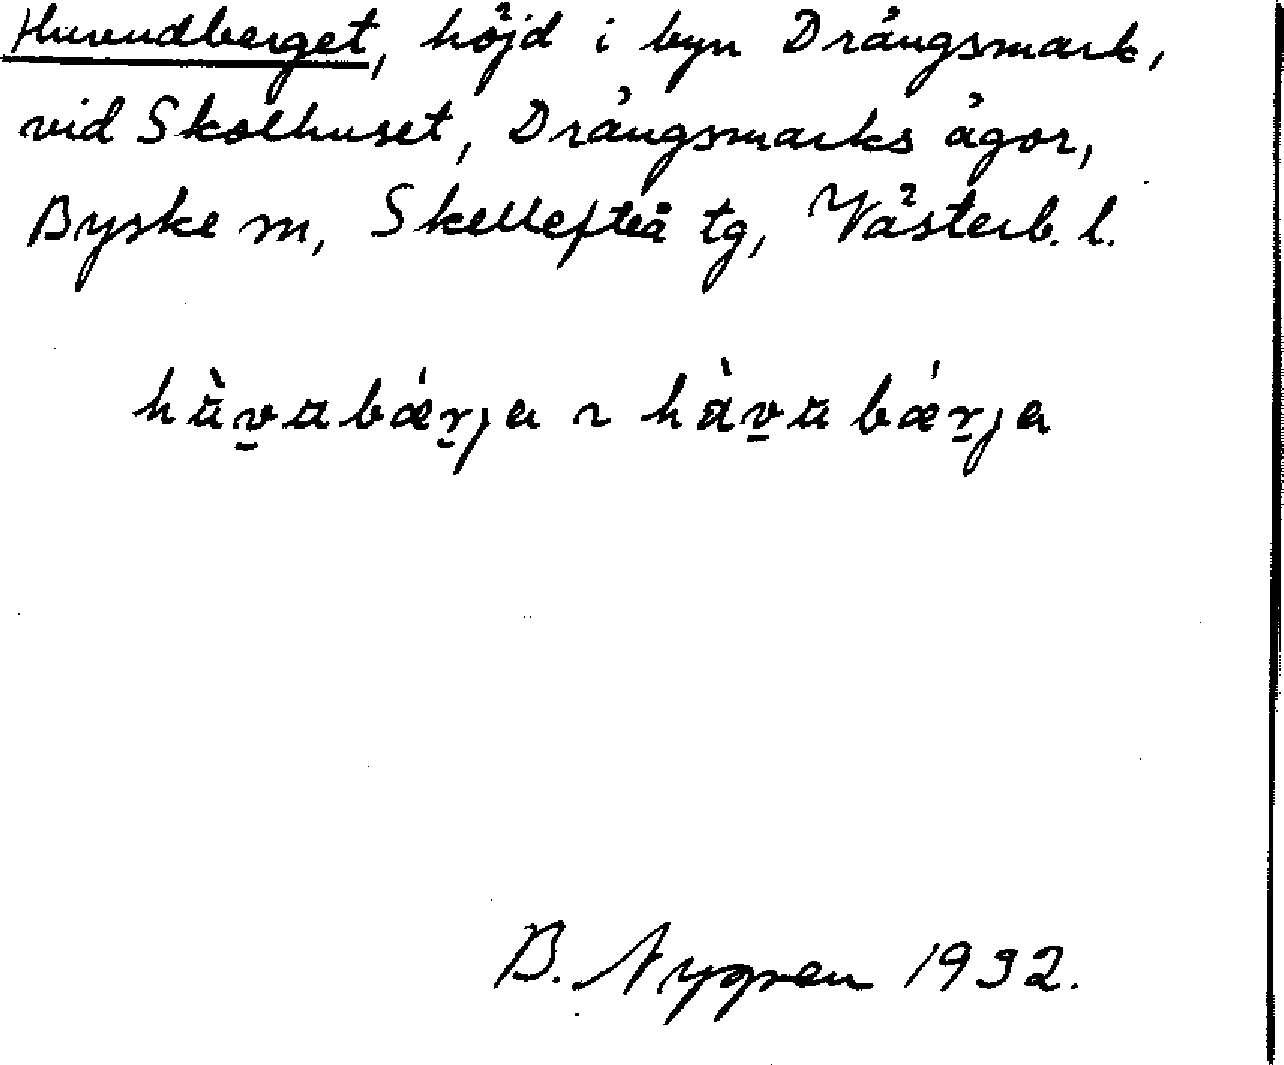 Huvudberget, höjd i byn Drängsmark,
vid Skolhuset, Drängsmarks ägor,
Byske sn, Skellefteå tg, Västerb. l.
B. Nygren 1932.